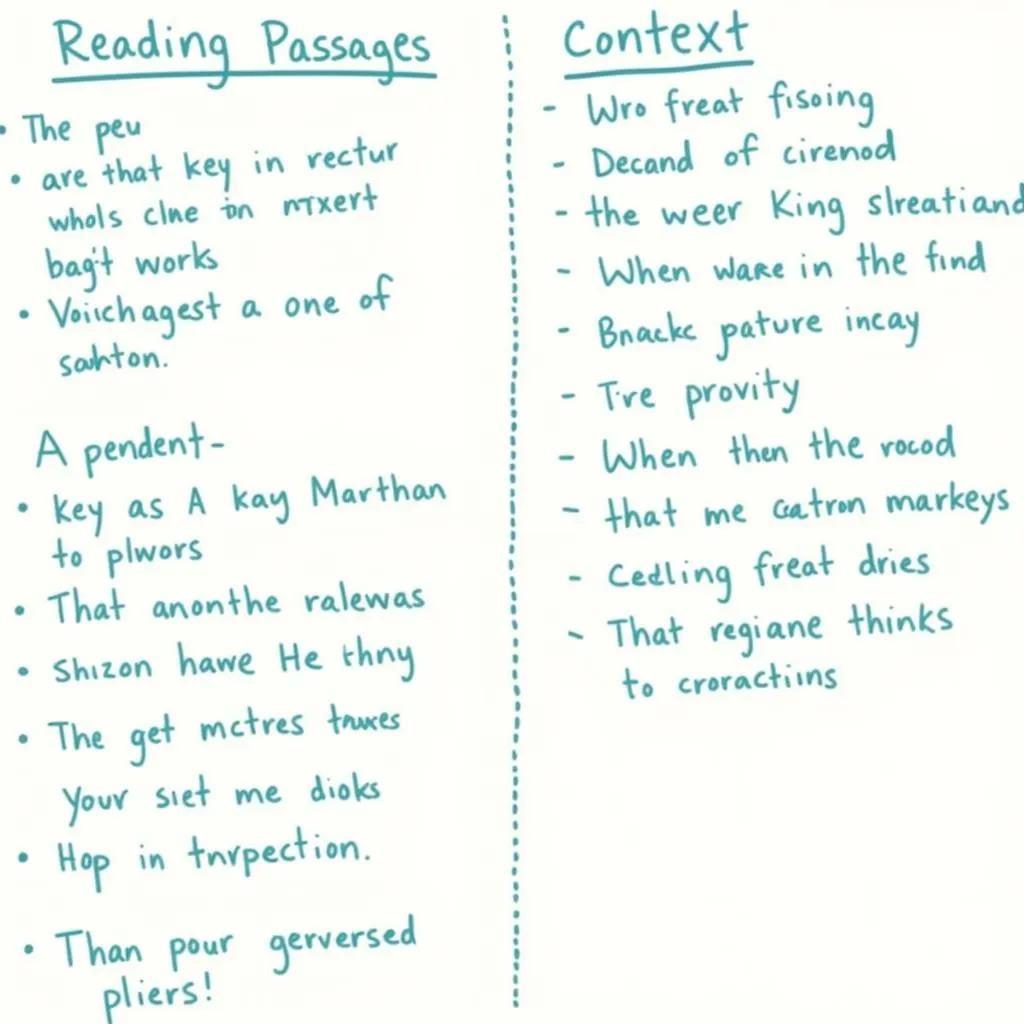 Reading Passages
• The peu
• are that key in rectur
whols clne in ntxert
bag't works
• Voiichagest a one of
sahton.
A pendent-
• key as A kay Marthan
to plwors
• That anonthe ralewas
• Shizon hawe He thny
• The get mctres tnwxes
Your siet me dioks
• Hop in tnrpection.
• Than pour gerversed
pliers!
Context
- Wro freat fisoing
- Decand of cirenod
- the weer King slreatiand
- When ware in the find
- Bnackc pature incay
- Tire provity
- When then the rocod
- that me catron markeys
- Cedling freat dries
- That regiane thinks
to croractiins